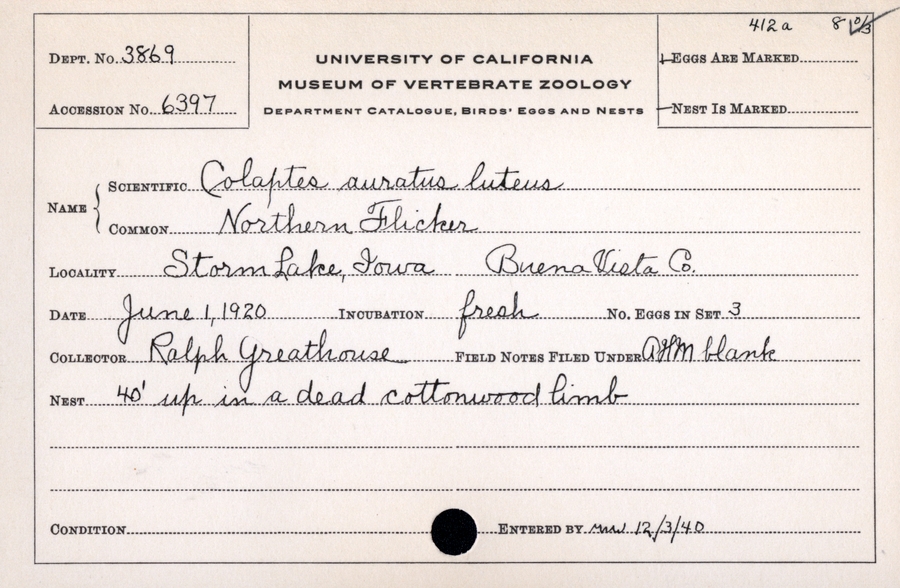 412a 8 10/3
Dept. No. 3869
UNIVERSITY OF CALIFORNIA
Eggs Are Marked
MUSEUM OF VERTEBRATE ZOOLOGY
Accession No. 6397
Department Catalogue, Birds' Eggs and Nests
Nest Is Marked
Name { Scientific Colaptes auratus luteus
Common Northern Flicker
Locality Storm Lake, Iowa Buena Vista Co.
Date June 1, 1920 Incubation fresh No. Eggs in Set 3
Collector Ralph Greathouse Field Notes Filed Under AHM blank
Nest 40' up in a dead cottonwood limb
Condition Entered by 12/3/40